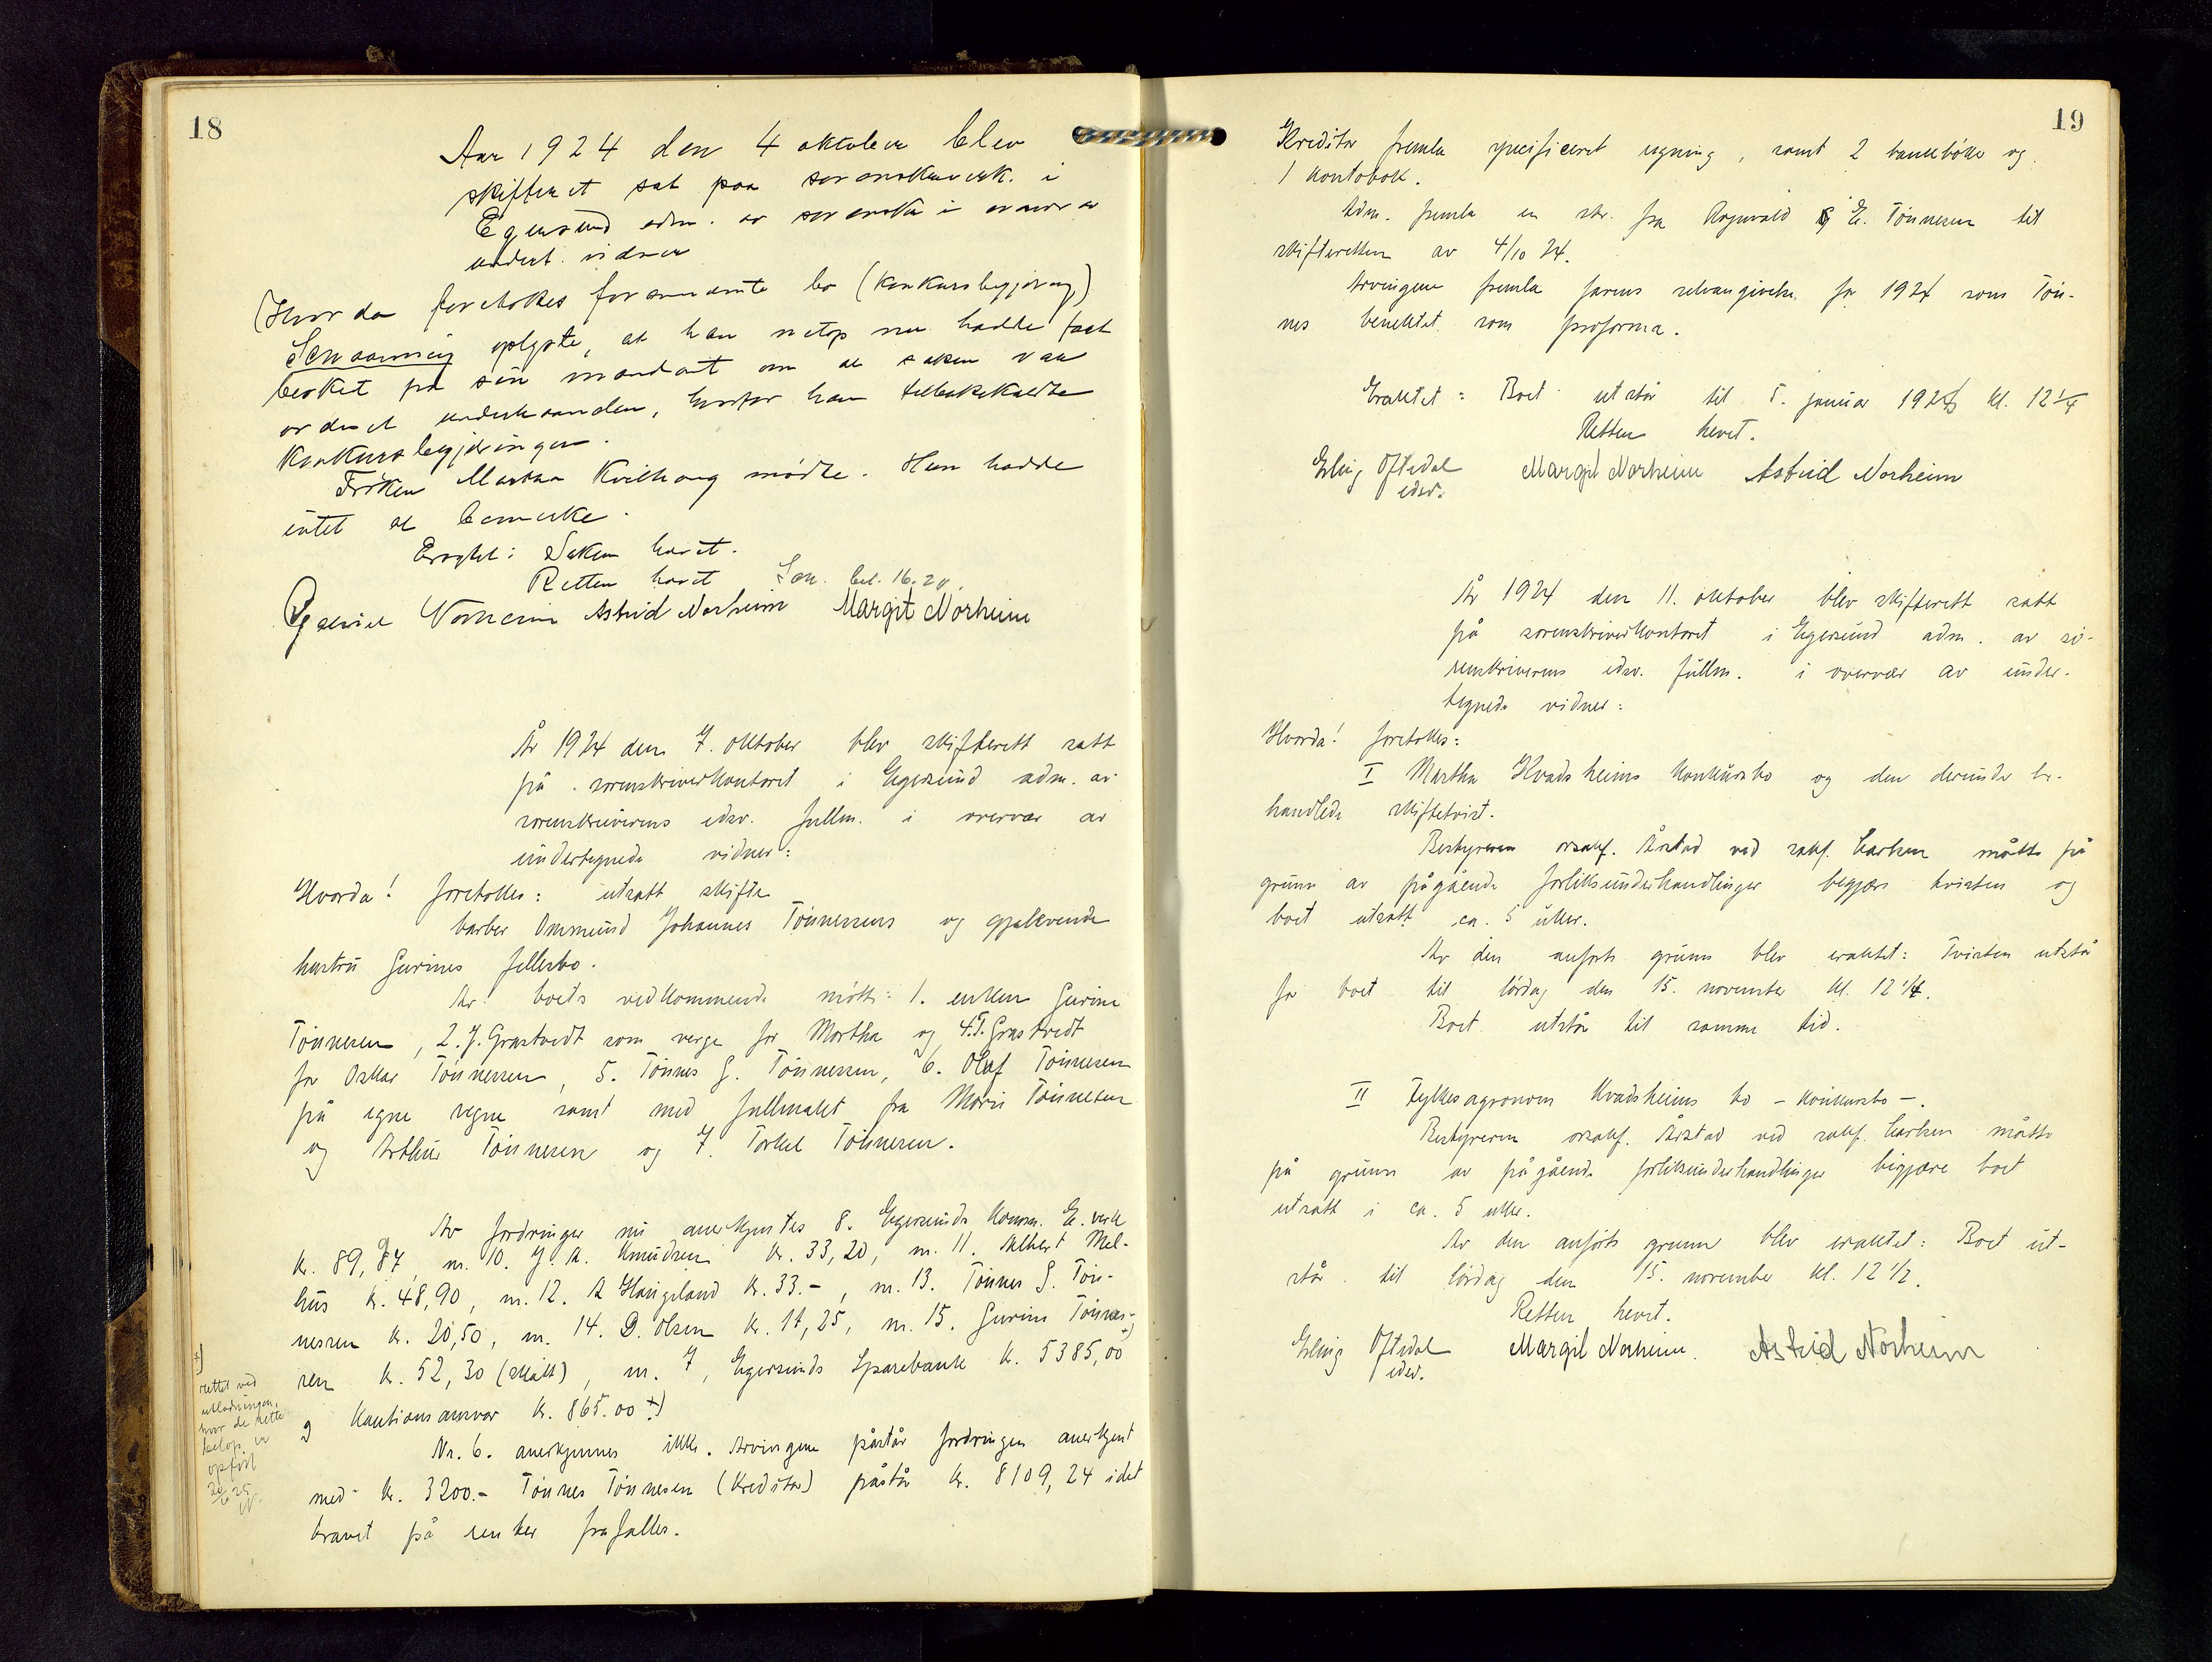 18
Aar 1924 den 4 oktober blev
skifteret sat paa sorenskriverk. i
Egersund adm. av sorenskr. i overvær av
undert. vidner
Hvorda foretokes forannævnte bo (konkursbegjæring)
Schaanning oplyste, at han netop nu hadde faat
besket fra sin mandant om at saken var
ordnet underhaanden, hvorfor han tilbakekaldte
konkursbegjæringen.
Frøken Martha Kvilhaug mødte. Hun hadde
intet at bemerke.
Eragtet: Saken hævet.
Retten hævet
Norheim Astrid Norheim Margit Norheim
År 1924 den 7. oktober blev skifterett satt
på sorenskriverkontoret i Egersund adm. av
sorenskriverens edsv. fullm. i overvær av
undertegnede vidner:
Hvorda! foretokes: utsatt skifte
barber Ommund Johannes Tønnessens og gjenlevende
hustru Gurines fellesbo.
Av boets vedkommende møtte: 1. enken Gurine
Tønnesen, 2. J. Grastvedt som verge for Martha og 4. T. Grastvedt
for Oskar Tønnessen, 5. Tønnes G. Tønnessen, 6. Olaf Tønnesen
på egne vegne samt med fullmakt fra Marie Tønnesen
og Arthur Tønnesen og 7. Torkel Tønnesen.
Av fordringer nu anerkjentes 8. Egersunds komm. E. verk
kr. 89,87, nr. 10. J. A. Knudsen kr. 33,20, nr. 11. Albert Mel-
hus kr. 48,90, nr. 12. A Haugeland kr. 33.-, nr. 13. Tønnes G. Tøn-
nessen kr. 20,50, nr. 14. D. Olsen kr. 17,25, nr. 15. Gurine Tønnes-
sen kr. 52,30 (skatt), nr. 7, Egersunds Sparebank kr. 5385,00 +)
og Kautionsansvar kr. 865.00 +)
Nr. 6. anerkjennes ikke. Arvingene påstår fordringen anerkjent
med kr. 3200.- Tønnes Tønnesen (Kreditor) påstår kr. 8109,24 idet
kravet på renter frafalles.
+)
rettet ved
utlodningen,
hvor de rette
beløp er
opført
20/6 25
N.
19
Kreditor fremla specificeret regning, samt 2 bankbøker og
1 kontobok.
Adm. fremla en skr. fra Rognvald E. Tønnesen til
skifteretten av 4/10 24.
Arvingene fremla farens selvangivelse for 1924 som Tøn-
nes benektet som proforma.
Eraktet: Boet utstår til 5. januar 1925 kl. 12 1/4
Retten hevet.
Erling Oftedal Margit Norheim Astrid Norheim
edsv.
År 1924 den 11. oktober blev skifterett satt
på sorenskriverkontoret i Egersund adm. av so-
renskriverens edsv. fullm. i overvær av under-
tegnede vidner:
Hvorda! foretokes:
I Martha Kvadsheims konkursbo og den derunder be-
handlede skiftetvist.
Bestyreren orsakf. Årstad ved sakf. Carlsen møtte på
grunn av pågående forliksunderhandlinger begjært tvisten og
boet utsatt ca. 5 uker.
Av den anførte grunn blev eraktet: Tvisten utstår
for boet til lørdag den 15. november kl. 12 1/4.
Boet utstår til samme tid.
II Fylkesagronom Kvadsheims bo - konkursbo -.
Bestyreren orsakf. Årstad ved sakf. Carlsen møtte
på grunn av pågående forliksunderhandlinger begjære boet
utsatt i ca. 5 uker.
Av den anførte grunn blev eraktet: Boet ut-
står til lørdag den 15. november kl. 12 1/2.
Retten hevet.
Erling Oftedal Margit Norheim. Astrid Norheim
edsv.